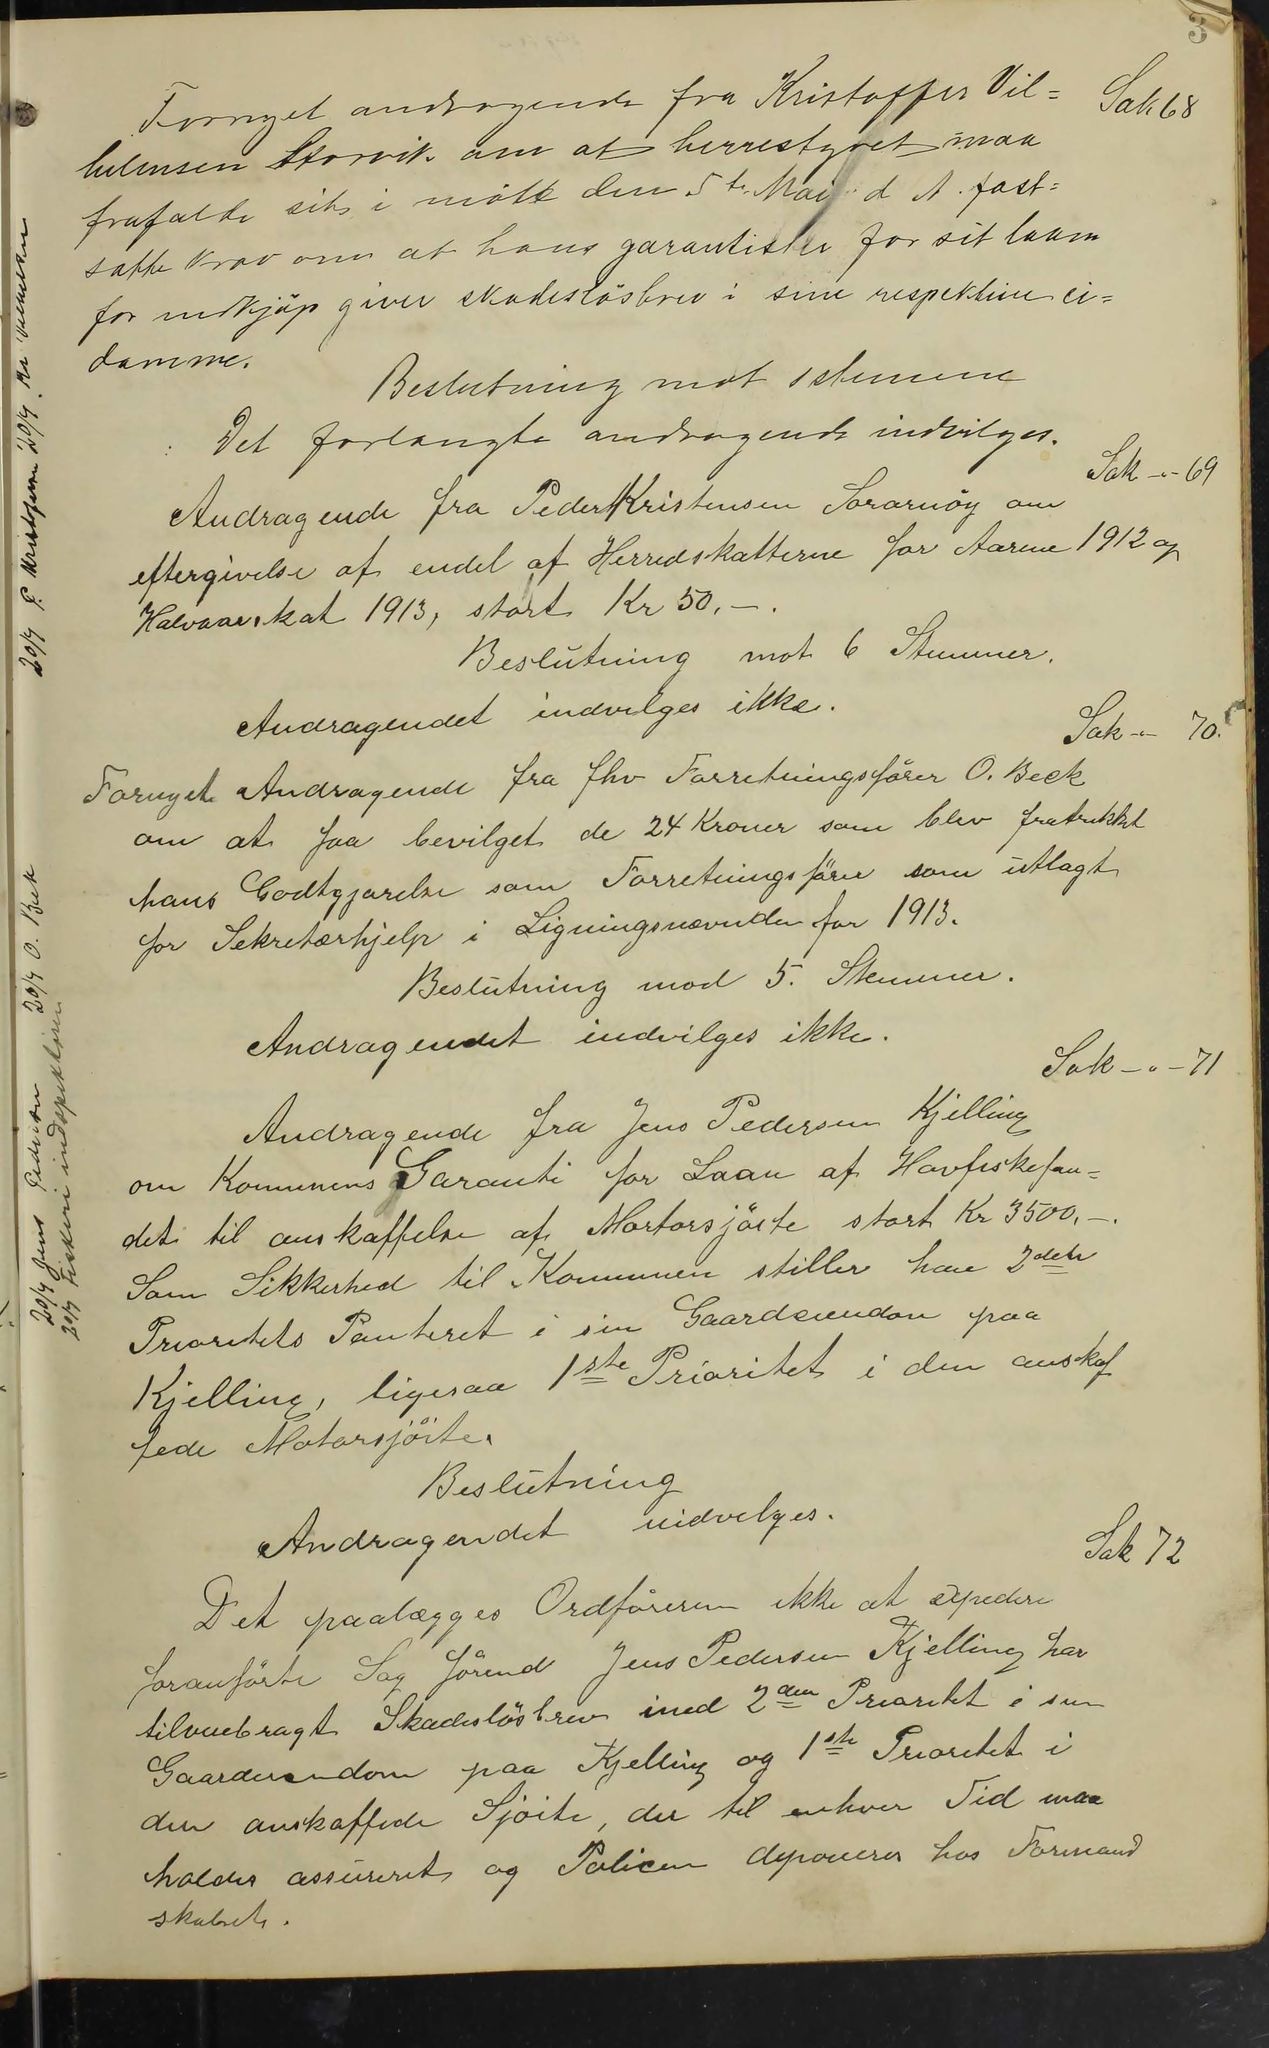 3
Sak 68
Fornyet andragende fra Kristoffer Vil=
helmsen Storvik om at herrestyret maa
frafalde sit i mötte den 5te Mai d A. fast=
satte krav om at hans garantister for sit laan
for indkjöp giver skadeslösbrev i sine respektive ei=
domme.
Beslutning mot 1 stemme
Det forlangte andragende indvilges.
Sak -"- 69
Andragende fra Peder Kristensen Sørarnöy om
eftergivelse af endel af Herredskatterne for Aarene 1912 og
Halvaarskat 1913, stort Kr 50.-.
Beslutning mot 6 Stemmer.
Andragendet indvilges ikke.
Sak -"- 70.
Fornyet Andragende fra fhv Forretningsförer O. Beck
om at faa bevilget de 24 Kroner som blev fratrukket
hans Godtgjørelse som Forretningsförer som utlagt
for Sekretærhjelp i Ligningsnævnden for 1913.
Beslutning mod 5. Stemmer.
Andragendet indvilges ikke.
Sak -"- 71
Andragende fra Jens Pedersen Kjelling
om Kommunens Garanti for Laan af Havfiskefon=
det til anskaffelse af Mortorsjöite stort Kr 3500.-.
Som Sikkerhed til Kommunen stiller han 2den
Prioritets Panteret i sin Gaardeiendom paa
Kjelling, ligesaa 1ste Prioritet i den anskaf
fede Motorsjöite.
Beslutning
Andragendet indvilges.
Sak 72
Det paalægges Ordföreren ikke at expedere
foranförte Sag förend Jens Pedersen Kjelling har
tilveiebragt Skadeslösbrev med 2den Prioritet i sin
Gaardeiendom paa Kjelling og 1ste Prioritet i
den anskaffede Sjöite, der til enhver Tid maa
holdes assureret og Policen deponeres hos Formand
skabet.
20/7 P. Kristensen 20/7. Kr Vilhelmsen
20/7 Jens Pedersen 20/7 O. Bek
20/7 Fiskeriindspektören